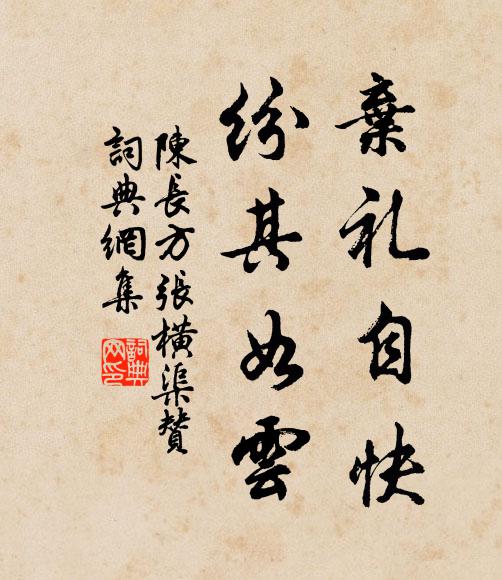 棄礼自快
紛其如雲
陳長方張橫渠贊
詞典網集
詞典網印